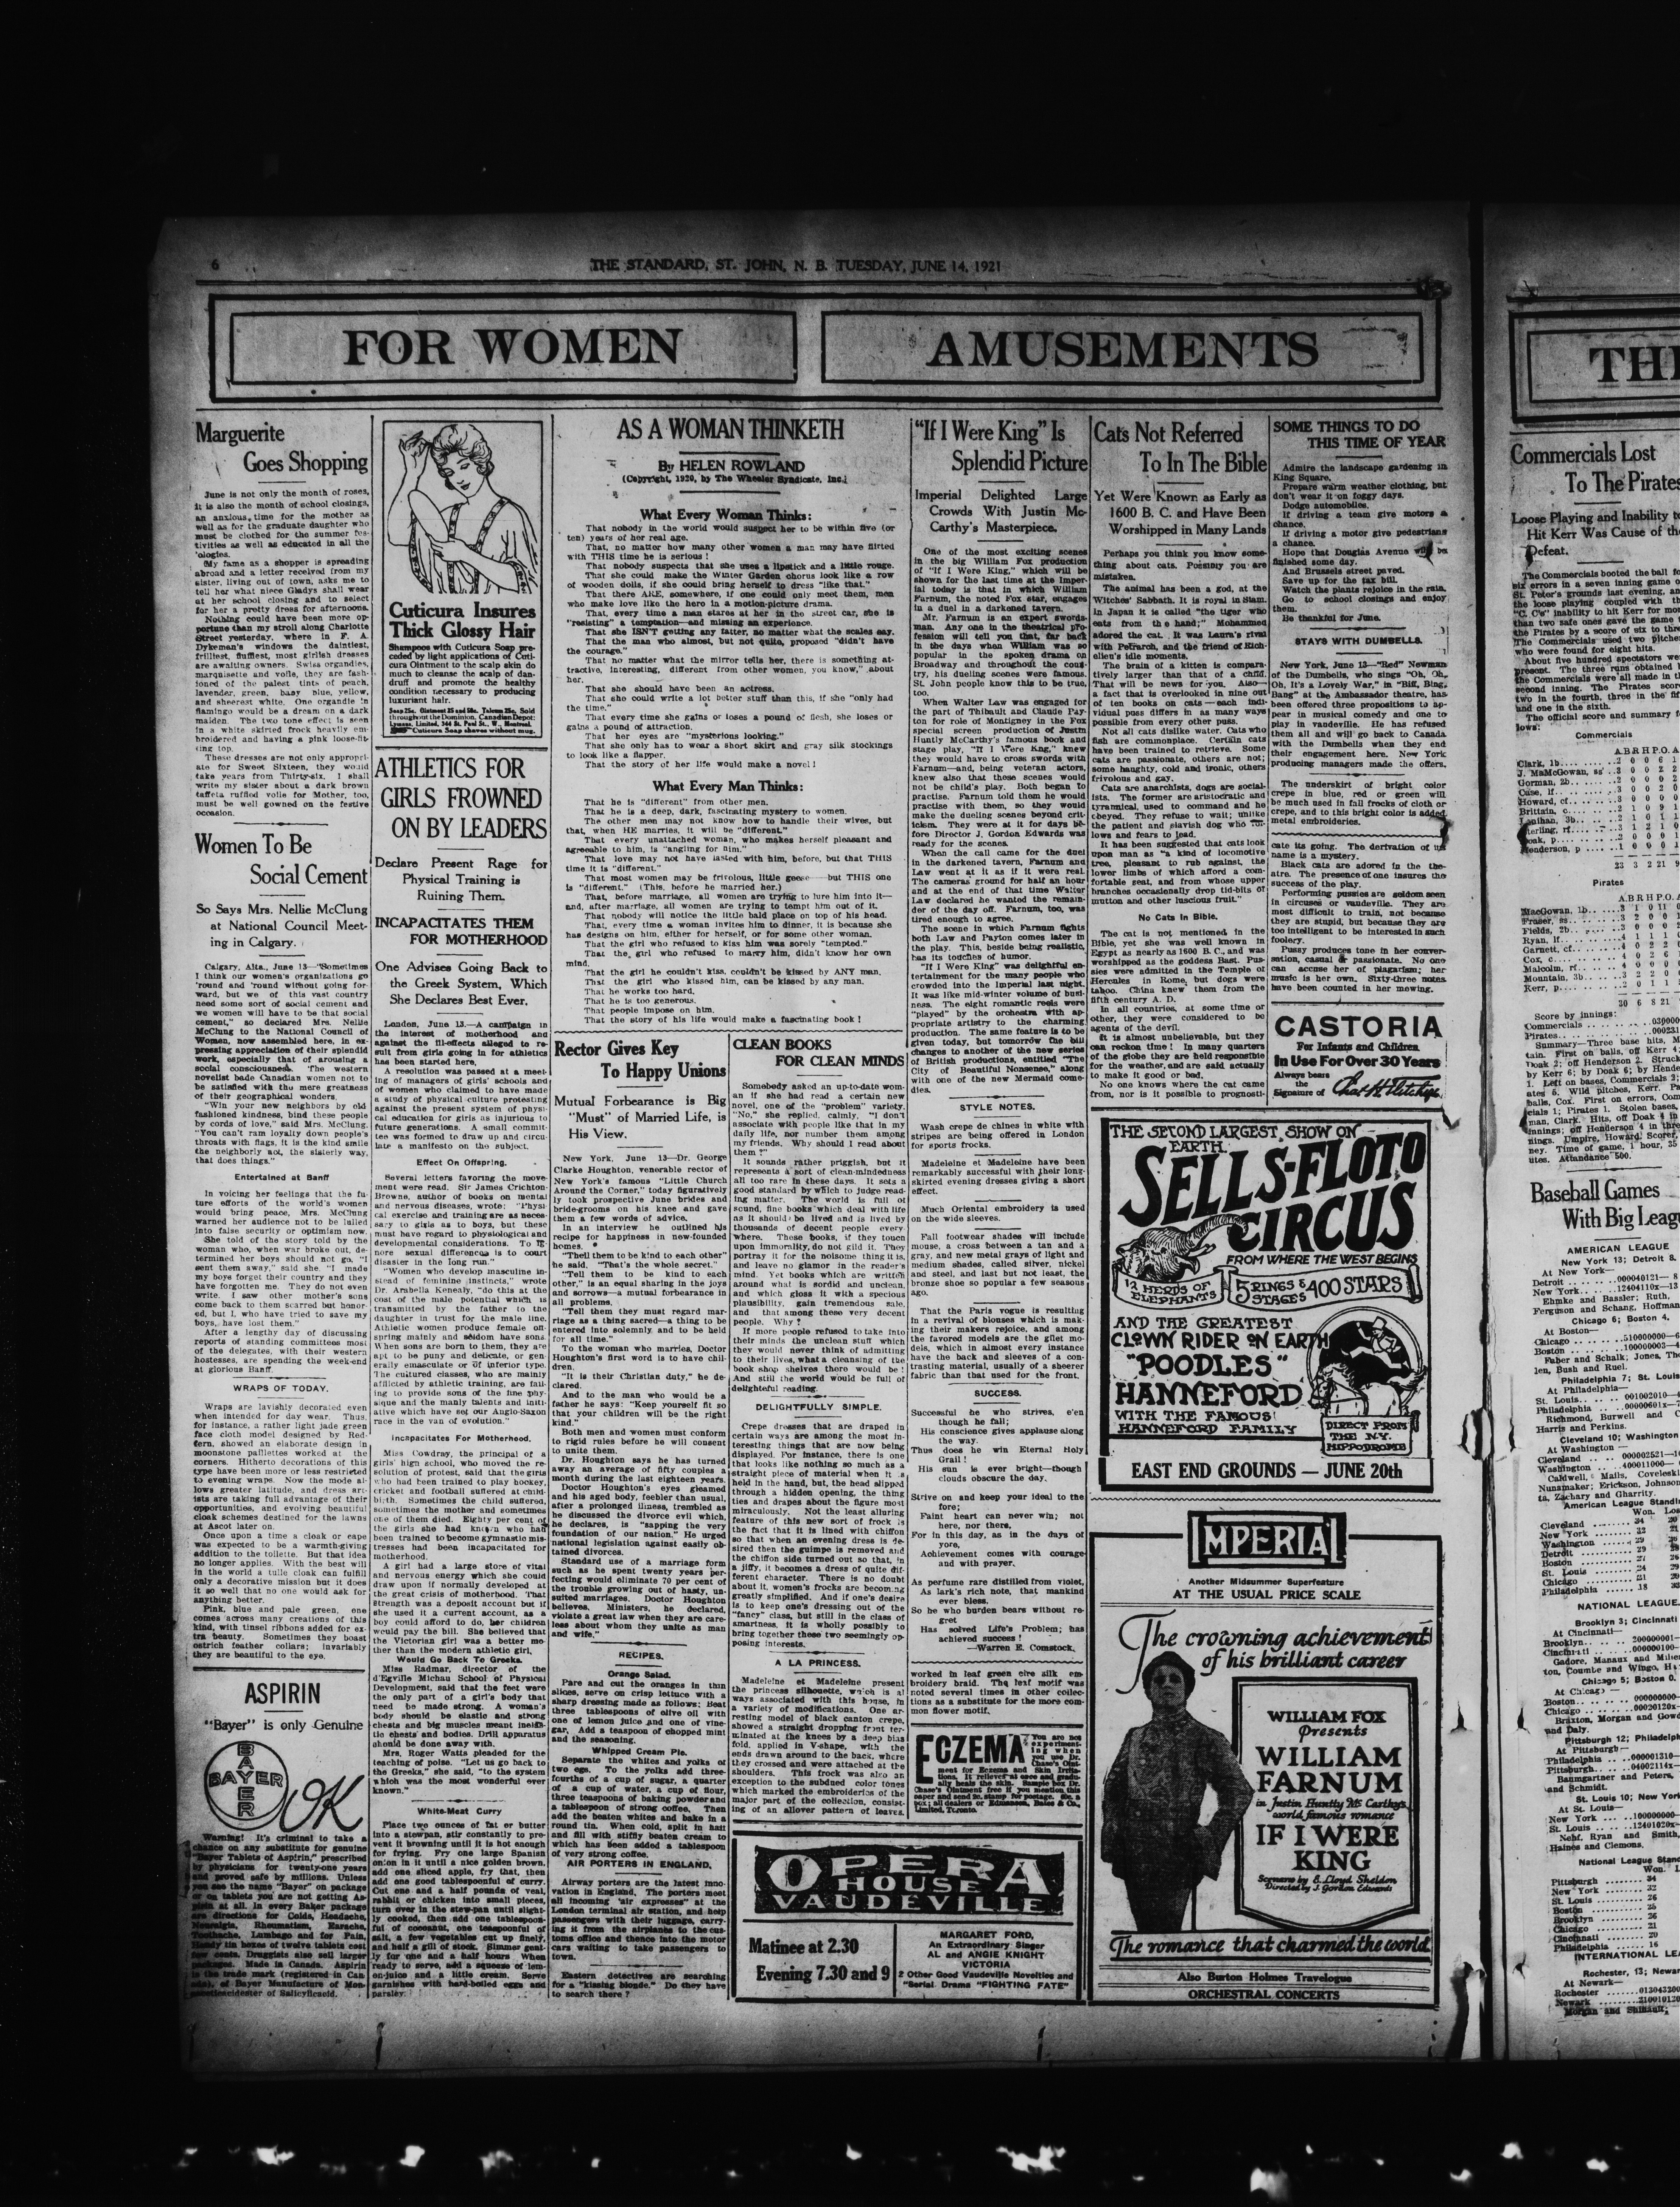 6
THE STANDARD, ST. JOHN, N. B. TUESDAY, JUNE 14, 1921
FOR WOMEN
AMUSEMENTS
Marguerite
Goes Shopping
June is not only the month of roses,
it is also the month of school closings,
an anxious time for the mother as
well as for the graduate daughter who
must be clothed for the summer fes-
tivities as well as educated in all the
'ologies.
My fame as a shopper is spreading
abroad and a letter received from my
sister, living out of town, asks me to
tell her what niece Gladys shall wear
at her school closing and to select
for her a pretty dress for afternoons.
Nothing could have been more op-
portune than my stroll along Charlotte
Street yesterday, where in F. A.
Dykeman's windows the daintiest,
frilliest, fluffiest, most girlish dresses
are awaiting owners. Swiss organdies,
marquisette and voile, they are fash-
ioned of the palest tints of peach,
lavender, green, baby blue, yellow,
and sheerest white. One organdie in
flamingo would be a dream on a dark
maiden. The two tone effect is seen
in a white skirted frock heavily em-
broidered and having a pink loose-fit-
ting top.
These dresses are not only appropri-
ate for Sweet Sixteen, they would
take years from Thirty-six. I shall
write my sister about a dark brown
taffeta ruffled voile for Mother, too,
must be well gowned on the festive
occasion.
Women To Be
Social Cement
So Says Mrs. Nellie McClung
at National Council Meet-
ing in Calgary.
Calgary, Alta., June 13—"Sometimes
I think our women's organizations go
'round and 'round without going for-
ward, but we of this vast country
need some sort of social cement and
we women will have to be that social
cement," so declared Mrs. Nellie
McClung to the National Council of
Women, now assembled here, in ex-
pressing appreciation of their splendid
work, especially that of arousing a
social consciousness. The western
novelist bade Canadian women not to
be satisfied with the mere greatness
of their geographical wonders.
"Win your new neighbors by old
fashioned kindness, bind these people
by cords of love," said Mrs. McClung.
"You can't ram loyalty down people's
throats with flags, it is the kind smile
the neighborly act, the sisterly way,
that does things."
Entertained at Banff
In voicing her feelings that the fu-
ture efforts of the world's women
would bring peace, Mrs. McClung
warned her audience not to be lulled
into false security or optimism now.
She told of the story told by the
woman who, when war broke out, de-
termined her boys should not go, "I
sent them away," said she. "I made
my boys forget their country and they
have forgotten me. They do not even
write. I saw other mother's sons
come back to them scarred but honor-
ed, but I, who have tried to save my
boys, have lost them."
After a lengthy day of discussing
reports of standing committees most
of the delegates, with their western
hostesses, are spending the week-end
at glorious Banff.
WRAPS OF TODAY.
Wraps are lavishly decorated even
when intended for day wear. Thus,
for instance, a rather light jade green
face cloth model designed by Red-
fern, showed an elaborate design in
moonstone palliettes worked at the
corners. Hitherto decorations of this
type have been more or less restricted
to evening wraps. Now the mode al-
lows greater latitude, and dress art-
ists are taking full advantage of their
opportunities, and evolving beautiful
cloak schemes destined for the lawns
at Ascot later on.
Once upon a time a cloak or cape
was expected to be a warmth-giving
addition to the toilette. But that idea
no longer applies. With the best will
in the world a tulle cloak can fulfill
only a decorative mission but it does
it so well that no one would ask for
anything better.
Pink, blue and pale green, one
comes across many creations of this
kind, with tinsel ribbons added for ex-
tra beauty. Sometimes they boast
ostrich feather collars; invariably
they are beautiful to the eye.
ASPIRIN
"Bayer" is only Genuine
BAYER
BAYER
OK
Warning! It's criminal to take a
chance on any substitute for genuine
"Bayer Tablets of Aspirin," prescribed
by physicians for twenty-one years
and proved safe by millions. Unless
you see the name "Bayer" on package
or on tablets you are not getting As-
pirin at all. In every Bayer package
are directions for Colds, Headache,
Neuralgia, Rheumatism, Earache,
Toothache, Lumbago and for Pain.
Handy tin boxes of twelve tablets cost
few cents. Druggists also sell larger
packages. Made in Canada. Aspirin
is the trade mark (registered in Can-
ada), of Bayer Manufacture of Mon-
oaceticacidester of Salicylicacid.
Cuticura Insures
Thick Glossy Hair
Shampoos with Cuticura Soap pre-
ceded by light applications of Cuti-
cura Ointment to the scalp skin do
much to cleanse the scalp of dan-
druff and promote the healthy
condition necessary to producing
luxuriant hair.
Soap 25c. Ointment 25 and 50c. Talcum 25c. Sold
throughout the Dominion. Canadian Depot:
Lymans, Limited, 344 St. Paul St., W., Montreal.
Cuticura Soap shaves without mug.
ATHLETICS FOR
GIRLS FROWNED
ON BY LEADERS
Declare Present Rage for
Physical Training is
Ruining Them.
INCAPACITATES THEM
FOR MOTHERHOOD
One Advises Going Back to
the Greek System, Which
She Declares Best Ever.
London, June 13.—A campaign in
the interest of motherhood and
against the ill-effects alleged to re-
sult from girls going in for athletics
has been started here.
A resolution was passed at a meet-
ing of managers of girls' schools and
of women who claimed to have made
a study of physical culture protesting
against the present system of physi-
cal education for girls as injurious to
future generations. A small commit-
tee was formed to draw up and circu-
late a manifesto on the subject.
Effect On Offspring.
Several letters favoring the move-
ment were read. Sir James Crichton-
Browne, author of books on mental
and nervous diseases, wrote: "Physi-
cal exercise and training are as neces-
sary to girls as to boys, but these
must have regard to physiological and
developmental considerations. To ig-
nore sexual differences is to court
disaster in the long run."
"Women who develop masculine in-
stead of feminine instincts," wrote
Dr. Arabella Kenealy, "do this at the
cost of the male potential which is
transmitted by the father to the
daughter in trust for the male line.
Athletic women produce female off-
spring mainly and seldom have sons.
When sons are born to them, they are
apt to be puny and delicate, or gen-
erally emasculate or of inferior type.
The cultured classes, who are mainly
afflicted by athletic training, are fail-
ing to provide sons of the fine phy-
sique and the manly talents and initi-
ative which have set our Anglo-Saxon
race in the van of evolution."
Incapacitates For Motherhood.
Miss Cowdray, the principal of a
girls' high school, who moved the re-
solution of protest, said that the girls
who had been trained to play hockey,
cricket and football suffered at child-
birth. Sometimes the child suffered,
sometimes the mother and sometimes
one of them died. Eighty per cent of
the girls she had known who had
been trained to become gymnastic mis-
tresses had been incapacitated for
motherhood.
A girl had a large store of vital
and nervous energy which she could
draw upon if normally developed at
the great crisis of motherhood. That
strength was a deposit account but if
she used it a current account, as a
boy could afford to do, her children
would pay the bill. She believed that
the Victorian girl was a better mo-
ther than the modern athletic girl.
Would Go Back To Greeks.
Miss Radmar, director of the
d'Egville Michau School of Physical
Development, said that the feet were
the only part of a girl's body that
need be made strong. A woman's
body should be elastic and strong
chests and big muscles meant inelas-
tic chests and bodies. Drill apparatus
should be done away with.
Mrs. Roger Watts pleaded for the
teaching of poise. "Let us go back to
the Greeks," she said, "to the system
which was the most wonderful ever
known."
White-Meat Curry
Place two ounces of fat or butter
into a stewpan, stir constantly to pre-
vent it browning until it is hot enough
for frying. Fry one large Spanish
onion in it until a nice golden brown,
add one sliced apple, fry that, then
add one good tablespoonful of curry.
Cut one and a half pounds of veal,
rabbit or chicken into small pieces,
turn over in the stew-pan until slight-
ly cooked, then add one tablespoon-
ful of cocoanut, one teaspoonful of
salt, a few vegetables cut up finely,
and half a gill of stock. Simmer gent-
ly for one and a half hours. When
ready to serve, add a squeeze of lem-
on-juice and a little cream. Serve
garnished with hard-boiled eggs and
parsley.
AS A WOMAN THINKETH
By HELEN ROWLAND
(Copyright, 1920, by The Wheeler Syndicate, Inc.)
What Every Woman Thinks:
That nobody in the world would suspect her to be within five (or
ten) years of her real age.
That, no matter how many other women a man may have flirted
with THIS time he is serious!
That nobody suspects that she uses a lipstick and a little rouge.
That she could make the Winter Garden chorus look like a row
of wooden dolls, if she could bring herself to dress "like that."
That there ARE, somewhere, if one could only meet them, men
who make love like the hero in a motion-picture drama.
That, every time a man stares at her in the street car, she is
"resisting" a temptation—and missing an experience.
That she ISN'T getting any fatter, no matter what the scales say.
That the man who almost, but not quite, proposed "didn't have
the courage."
That no matter what the mirror tells her, there is something at-
tractive, interesting, different from other women, you know," about
her.
That she should have been an actress.
That she could write a lot better stuff than this, if she "only had
the time."
That every time she gains or loses a pound of flesh, she loses or
gains a pound of attraction.
That her eyes are "mysterious looking."
That she only has to wear a short skirt and gray silk stockings
to look like a flapper.
That the story of her life would make a novel!
What Every Man Thinks:
That he is "different" from other men.
That he is a deep, dark, fascinating mystery to women.
The other men may not know how to handle their wives, but
that, when HE marries, it will be "different."
That every unattached woman, who makes herself pleasant and
agreeable to him, is "angling for him."
That love may not have lasted with him, before, but that THIS
time it is "different."
That most women may be frivolous, little geese——but THIS one
is "different." (This, before he married her.)
That, before marriage, all women are trying to lure him into it—
and, after marriage, all women are trying to tempt him out of it.
That nobody will notice the little bald place on top of his head.
That, every time a woman invites him to dinner, it is because she
has designs on him, either for herself, or for some other woman.
That the girl who refused to kiss him was sorely "tempted."
That the girl who refused to marry him, didn't know her own
mind.
That the girl he couldn't kiss, couldn't be kissed by ANY man.
That the girl who kissed him, can be kissed by any man.
That he works too hard.
That he is too generous.
That people impose on him.
That the story of his life would make a fascinating book!
Rector Gives Key
To Happy Unions
Mutual Forbearance is Big
"Must" of Married Life, is
His View.
New York, June 13—Dr. George
Clarke Houghton, venerable rector of
New York's famous "Little Church
Around the Corner," today figuratively
took prospective June brides and
bride-grooms on his knee and gave
them a few words of advice.
In an interview he outlined his
recipe for happiness in new-founded
homes.
"Thell them to be kind to each other"
he said, "That's the whole secret."
"Tell them to be kind to each
other," is an equal sharing in the joys
and sorrows—a mutual forbearance in
all problems.
"Tell them they must regard mar-
riage as a thing sacred—a thing to be
entered into solemnly, and to be held
for all time."
To the woman who marries, Doctor
Houghton's first word is to have chil-
dren.
"It is their Christian duty," he de-
clared.
And to the man who would be a
father he says: "Keep yourself fit so
that your children will be the right
kind."
Both men and women must conform
to rigid rules before he will consent
to unite them.
Dr. Houghton says he has turned
away an average of fifty couples a
month during the last eighteen years.
Doctor Houghton's eyes gleamed
and his aged body, feebler than usual,
after a prolonged illness, trembled as
he discussed the divorce evil which,
he declares, is "sapping the very
foundation of our nation." He urged
national legislation against easily ob-
tained divorces.
Standard use of a marriage form
such as he spent twenty years per-
fecting would eliminate 70 per cent of
the trouble growing out of hasty, un-
suited marriages. Doctor Houghton
believes. Ministers, he declared,
violate a great law when they are care-
less about whom they unite as man
and wife."
RECIPES.
Orange Salad.
Pare and cut the oranges in thin
slices, serve on crisp lettuce with a
sharp dressing made as follows: Beat
three tablespoons of olive oil with
one of lemon juice and one of vine-
gar. Add a teaspoon of chopped mint
and the seasoning.
Whipped Cream Pie.
Separate the whites and yolks of
two eggs. To the yolks add three-
fourths of a cup of sugar, a quarter
of a cup of water, a cup of flour,
three teaspoons of baking powder and
a tablespoon of strong coffee. Then
add the beaten whites and bake in a
round tin. When cold, split in half
and fill with stiffly beaten cream to
which has been added a tablespoon
of very strong coffee.
AIR PORTERS IN ENGLAND.
Airway porters are the latest inno-
vation in England. The porters meet
all incoming "air expresses" at the
London terminal air station, and help
passengers with their luggage, carry-
ing it from the airplanes to the cus-
toms office and thence into the motor
cars waiting to take passengers to
town.
Eastern detectives are searching
for a "kissing blonde." Do they have
to search there?
CLEAN BOOKS
FOR CLEAN MINDS
Somebody asked an up-to-date wom-
an if she had read a certain new
novel, one of the "problem" variety.
"No," she replied, calmly, "I don't
associate with people like that in my
daily life, nor number them among
my friends. Why should I read about
them?"
It sounds rather priggish, but it
represents a sort of clean-mindedness
all too rare in these days. It sets a
good standard by which to judge read-
ing matter. The world is full of
sound, fine books which deal with life
as it should be lived and is lived by
thousands of decent people every-
where. These books, if they touch
upon immorality, do not gild it. They
portray it for the noisome thing it is,
and leave no glamor in the reader's
mind. Yet books which are written
around what is sordid and unclean,
and which gloss it with a specious
plausibility, gain tremendous sale,
and that among these very decent
people. Why?
If more people refused to take into
their minds the unclean stuff which
they would never think of admitting
to their lives, what a cleansing of the
book shop shelves there would be!
And still the world would be full of
delightful reading.
DELIGHTFULLY SIMPLE.
Crepe dresses that are draped in
certain ways are among the most in-
teresting things that are now being
displayed. For instance, there is one
that looks like nothing so much as a
straight piece of material when it is
held in the hand, but, the head slipped
through a hidden opening, the thing
ties and drapes about the figure most
miraculously. Not the least alluring
feature of this new sort of frock is
the fact that it is lined with chiffon
so that when an evening dress is de-
sired then the guimpe is removed and
the chiffon side turned out so that, in
a jiffy, it becomes a dress of quite dif-
ferent character. There is no doubt
about it, women's frocks are becoming
greatly simplified. And if one's desire
is to keep one's dressing out of the
"fancy" class, but still in the class of
smartness, it is wholly possible to
bring together these two seemingly op-
posing interests.
A LA PRINCESS.
Madeleine et Madeleine present
the princess silhouette, which is al-
ways associated with this house, in
a variety of modifications. One ar-
resting model of black canton crepe,
showed a straight dropping front ter-
minated at the knees by a deep bias
fold, applied in V-shape, with the
ends drawn around to the back, where
they crossed and were attached at the
shoulders. This frock was also an
exception to the subdued color tones
which marked the embroideries of the
major part of the collection, consist-
ing of an allover pattern of leaves,
"If I Were King" Is
Splendid Picture
Imperial Delighted Large
Crowds With Justin Mc-
Carthy's Masterpiece.
One of the most exciting scenes
in the big William Fox production
of "If I Were King," which will be
shown for the last time at the Imper-
ial today is that in which William
Farnum, the noted Fox star, engages
in a duel in a darkened tavern.
Mr. Farnum is an expert swords-
man. Any one in the theatrical pro-
fession will tell you that, far back
in the days when William was so
popular in the spoken drama on
Broadway and throughout the coun-
try, his dueling scenes were famous.
St. John people know this to be true,
too.
When Walter Law was engaged for
the part of Thibault and Claude Pay-
ton for role of Montigney in the Fox
special screen production of Justin
Huntly McCarthy's famous book and
stage play, "If I Were King," knew
they would have to cross swords with
Farnum—and, being veteran actors,
knew also that these scenes would
not be child's play. Both began to
practise. Farnum told them he would
practise with them, so they would
make the dueling scenes beyond crit-
icism. They were at it for days be-
fore Director J. Gordon Edwards was
ready for the scenes.
When the call came for the duel
in the darkened tavern, Farnum and
Law went at it as if it were real.
The cameras ground for half an hour
and at the end of that time Walter
Law declared he wanted the remain-
der of the day off. Farnum, too, was
tired enough to agree.
The scene in which Farnum fights
both Law and Payton comes later in
the play. This, beside being realistic,
has its touches of humor.
"If I Were King" was delightful en-
tertainment for the many people who
crowded into the Imperial last night.
It was like mid-winter volume of busi-
ness. The eight romantic reels were
"played" by the orchestra with ap-
propriate artistry to the charming
production. The same feature is to be
given today, but tomorrow the bill
changes to another of the new series
of British productions, entitled "The
City of Beautiful Nonsense," along
with one of the new Mermaid come-
dies.
STYLE NOTES.
Wash crepe de chines in white with
stripes are being offered in London
for sports frocks.
Madeleine et Madeleine have been
remarkably successful with their long-
skirted evening dresses giving a short
effect.
Much Oriental embroidery is used
on the wide sleeves.
Fall footwear shades will include
mouse, a cross between a tan and a
gray, and new metal grays of light and
medium shades, called silver, nickel
and steel, and last but not least, the
bronze shoe so popular a few seasons
ago.
That the Paris vogue is resulting
in a revival of blouses which is mak-
ing their makers rejoice, and among
the favored models are the gilet mo-
dels, which in almost every instance
have the back and sleeves of a con-
trasting material, usually of a sheerer
fabric than that used for the front.
SUCCESS.
Successful he who strives, e'en
though he fail;
His conscience gives applause along
the way.
Thus does he win Eternal Holy
Grail!
His sun is ever bright—though
clouds obscure the day.
Strive on and keep your ideal to the
fore;
Faint heart can never win; not
here, nor there,
For in this day, as in the days of
yore,
Achievement comes with courage
and with prayer.
As perfume rare distilled from violet,
As lark's rich note, that mankind
ever bless.
So be who burden bears without re-
gret
Has solved Life's Problem; has
achieved success!
—Warren E. Comstock.
worked in leaf green cire silk em-
broidery braid. The leaf motif was
noted several times in other collec-
tions as a substitute for the more com-
mon flower motif.
ECZEMA
You are not
experiment-
ing when
you use Dr.
Chase's Oint-
ment for Eczema and Skin Irrita-
tions. It relieves at once and gradu-
ally heals the skin. Sample box Dr.
Chase's Ointment free if you mention this
paper and send 2c. stamp for postage. 60c. a
box; all dealers or Edmanson, Bates & Co.,
Limited, Toronto.
OPERA
HOUSE
VAUDEVILLE
Matinee at 2.30
Evening 7.30 and 9
MARGARET FORD,
An Extraordinary Singer
AL and ANGIE KNIGHT
VICTORIA
2 Other Good Vaudeville Novelties and
"Serial Drama "FIGHTING FATE"
Cats Not Referred
To In The Bible
Yet Were Known as Early as
1600 B. C. and Have Been
Worshipped in Many Lands
Perhaps you think you know some-
thing about cats. Possibly you are
mistaken.
The animal has been a god, at the
Witches' Sabbath. It is royal in Siam.
In Japan it is called "the tiger who
eats from the hand;" Mohammed
adored the cat. It was Laura's rival
with Petrarch, and the friend of Rich-
elieu's idle moments.
The brain of a kitten is compara-
tively larger than that of a child.
That will be news for you. Also—
a fact that is overlooked in nine out
of ten books on cats—each indi-
vidual puss differs in as many ways
possible from every other puss.
Not all cats dislike water. Cats who
fish are commonplace. Certain cats
have been trained to retrieve. Some
cats are passionate, others are not;
some haughty, cold and ironic, others
frivolous and gay.
Cats are anarchists, dogs are social-
ists. The former are aristocratic and
tyrannical, used to command and be
obeyed. They refuse to wait; unlike
the patient and slavish dog who fol-
lows and fears to lead.
It has been suggested that cats look
upon man as "a kind of locomotive
tree, pleasant to rub against, the
lower limbs of which afford a com-
fortable seat, and from whose upper
branches occasionally drop tid-bits of
mutton and other luscious fruit."
No Cats In Bible.
The cat is not mentioned in the
Bible, yet she was well known in
Egypt as nearly as 1600 B. C., and was
worshipped as the goddess Bast. Pus-
sies were admitted in the Temple of
Hercules in Rome, but dogs were
taboo. China knew them from the
fifth century A. D.
In all countries, at some time or
other, they were considered to be
agents of the devil.
It is almost unbelievable, but they
can reckon time! In many quarters
of the globe they are held responsible
for the weather, and are said actually
to make it good or bad.
No one knows where the cat came
from, nor is it possible to prognosti-
SOME THINGS TO DO
THIS TIME OF YEAR
Admire the landscape gardening in
King Square.
Prepare warm weather clothing, but
don't wear it on foggy days.
Dodge automobiles.
If driving a team give motors a
chance.
If driving a motor give pedestrians
a chance.
Hope that Douglas Avenue will be
finished some day.
And Brussels street paved.
Save up for the tax bill.
Watch the plants rejoice in the rain.
Go to school closings and enjoy
them.
Be thankful for June.
STAYS WITH DUMBELLS.
New York, June 13—"Red" Newman
of the Dumbells, who sings "Oh, Oh,
Oh, It's a Lovely War," in "Biff, Bing,
Bang" at the Ambassador theatre, has
been offered three propositions to ap-
pear in musical comedy and one to
play in vaudeville. He has refused
them all and will go back to Canada
with the Dumbells when they end
their engagement here. New York
producing managers made the offers.
The underskirt of bright color
crepe in blue, red or green will
be much used in fall frocks of cloth or
crepe, and to this bright color is added
metal embroideries.
cate its going. The derivation of its
name is a mystery.
Black cats are adored in the the-
atre. The presence of one insures the
success of the play.
Performing pussies are seldom seen
in circuses or vaudeville. They are
most difficult to train, not because
they are stupid, but because they are
too intelligent to be interested in such
foolery.
Pussy produces tone in her conver-
sation, casual & passionate. No one
can accuse her of plagarism; her
music is her own. Sixty-three notes
have been counted in her mewing.
CASTORIA
For Infants and Children
In Use For Over 30 Years
Always bears
the
Signature of
Chas. H. Fletcher
THE SECOND LARGEST SHOW ON
EARTH
SELLS-FLOTO
CIRCUS
FROM WHERE THE WEST BEGINS
2 HERDS OF
ELEPHANTS
5 RINGS &
STAGES
400 STARS
AND THE GREATEST
CLOWN RIDER ON EARTH
"POODLES"
HANNEFORD
WITH THE FAMOUS
HANNEFORD FAMILY
DIRECT FROM
THE N.Y.
HIPPODROME
EAST END GROUNDS — JUNE 20th
IMPERIAL
Another Midsummer Superfeature
AT THE USUAL PRICE SCALE
The crowning achievement
of his brilliant career
WILLIAM FOX
Presents
WILLIAM
FARNUM
in Justin Huntly McCarthy's
world famous romance
IF I WERE
KING
Scenario by E. Lloyd Sheldon
Directed by J. Gordon Edwards
The romance that charmed the world
Also Burton Holmes Travelogue
ORCHESTRAL CONCERTS
Commercials Lost
To The Pirates
Loose Playing and Inability to
Hit Kerr Was Cause of
Defeat.
Baseball Games
With Big
AMERICAN LEAGUE
New York 13; Detroit 8.
At New York—
Chicago 6; Boston 4.
At Boston—
At Philadelphia—
Cleveland 10; Washington
At Washington—
NATIONAL LEAGUE.
Brooklyn 3; Cincinnati
At Cincinnati—
At Chicago—
Pittsburgh 12;
At Pittsburgh—
At St. Louis—
Rochester, 13;
At Newark—